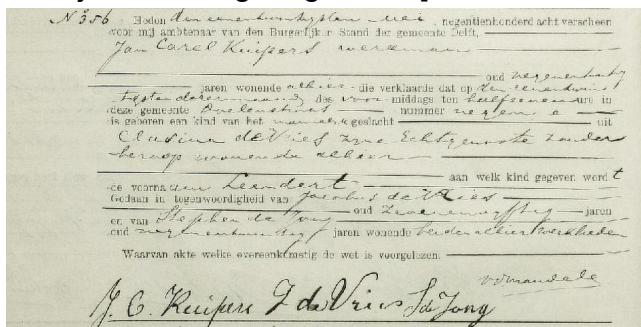 N 356 Heden den eenentwintigsten Mei, negentienhonderd acht verscheen
voor mij ambtenaar van den Burgerlijken Stand der gemeente Delft,
Jan Carel Kuijpers werkman
oud negenentwintig
jaren wonende alhier die verklaarde dat op den eenentwin
tigsten dezer maand des voor middags ten half zeven ure in
deze gemeente nummer negen
is geboren een kind van het mannelijk geslacht uit
Clasina de Vries zijne Echtgenoote zonder
beroep wonende alhier
aan welk kind gegeven wordt
de voornaam Leendert
Gedaan in tegenwoordigheid van Jacobus de Vries
oud zevenenvijftig jaren
en van Stephen de Jong
oud negenentwintig jaren wonende beiden alhier werklieden
Waarvan akte welke overeenkomstig de wet is voorgelezen.
J. C. Kuijpers J de Vries S de Jong